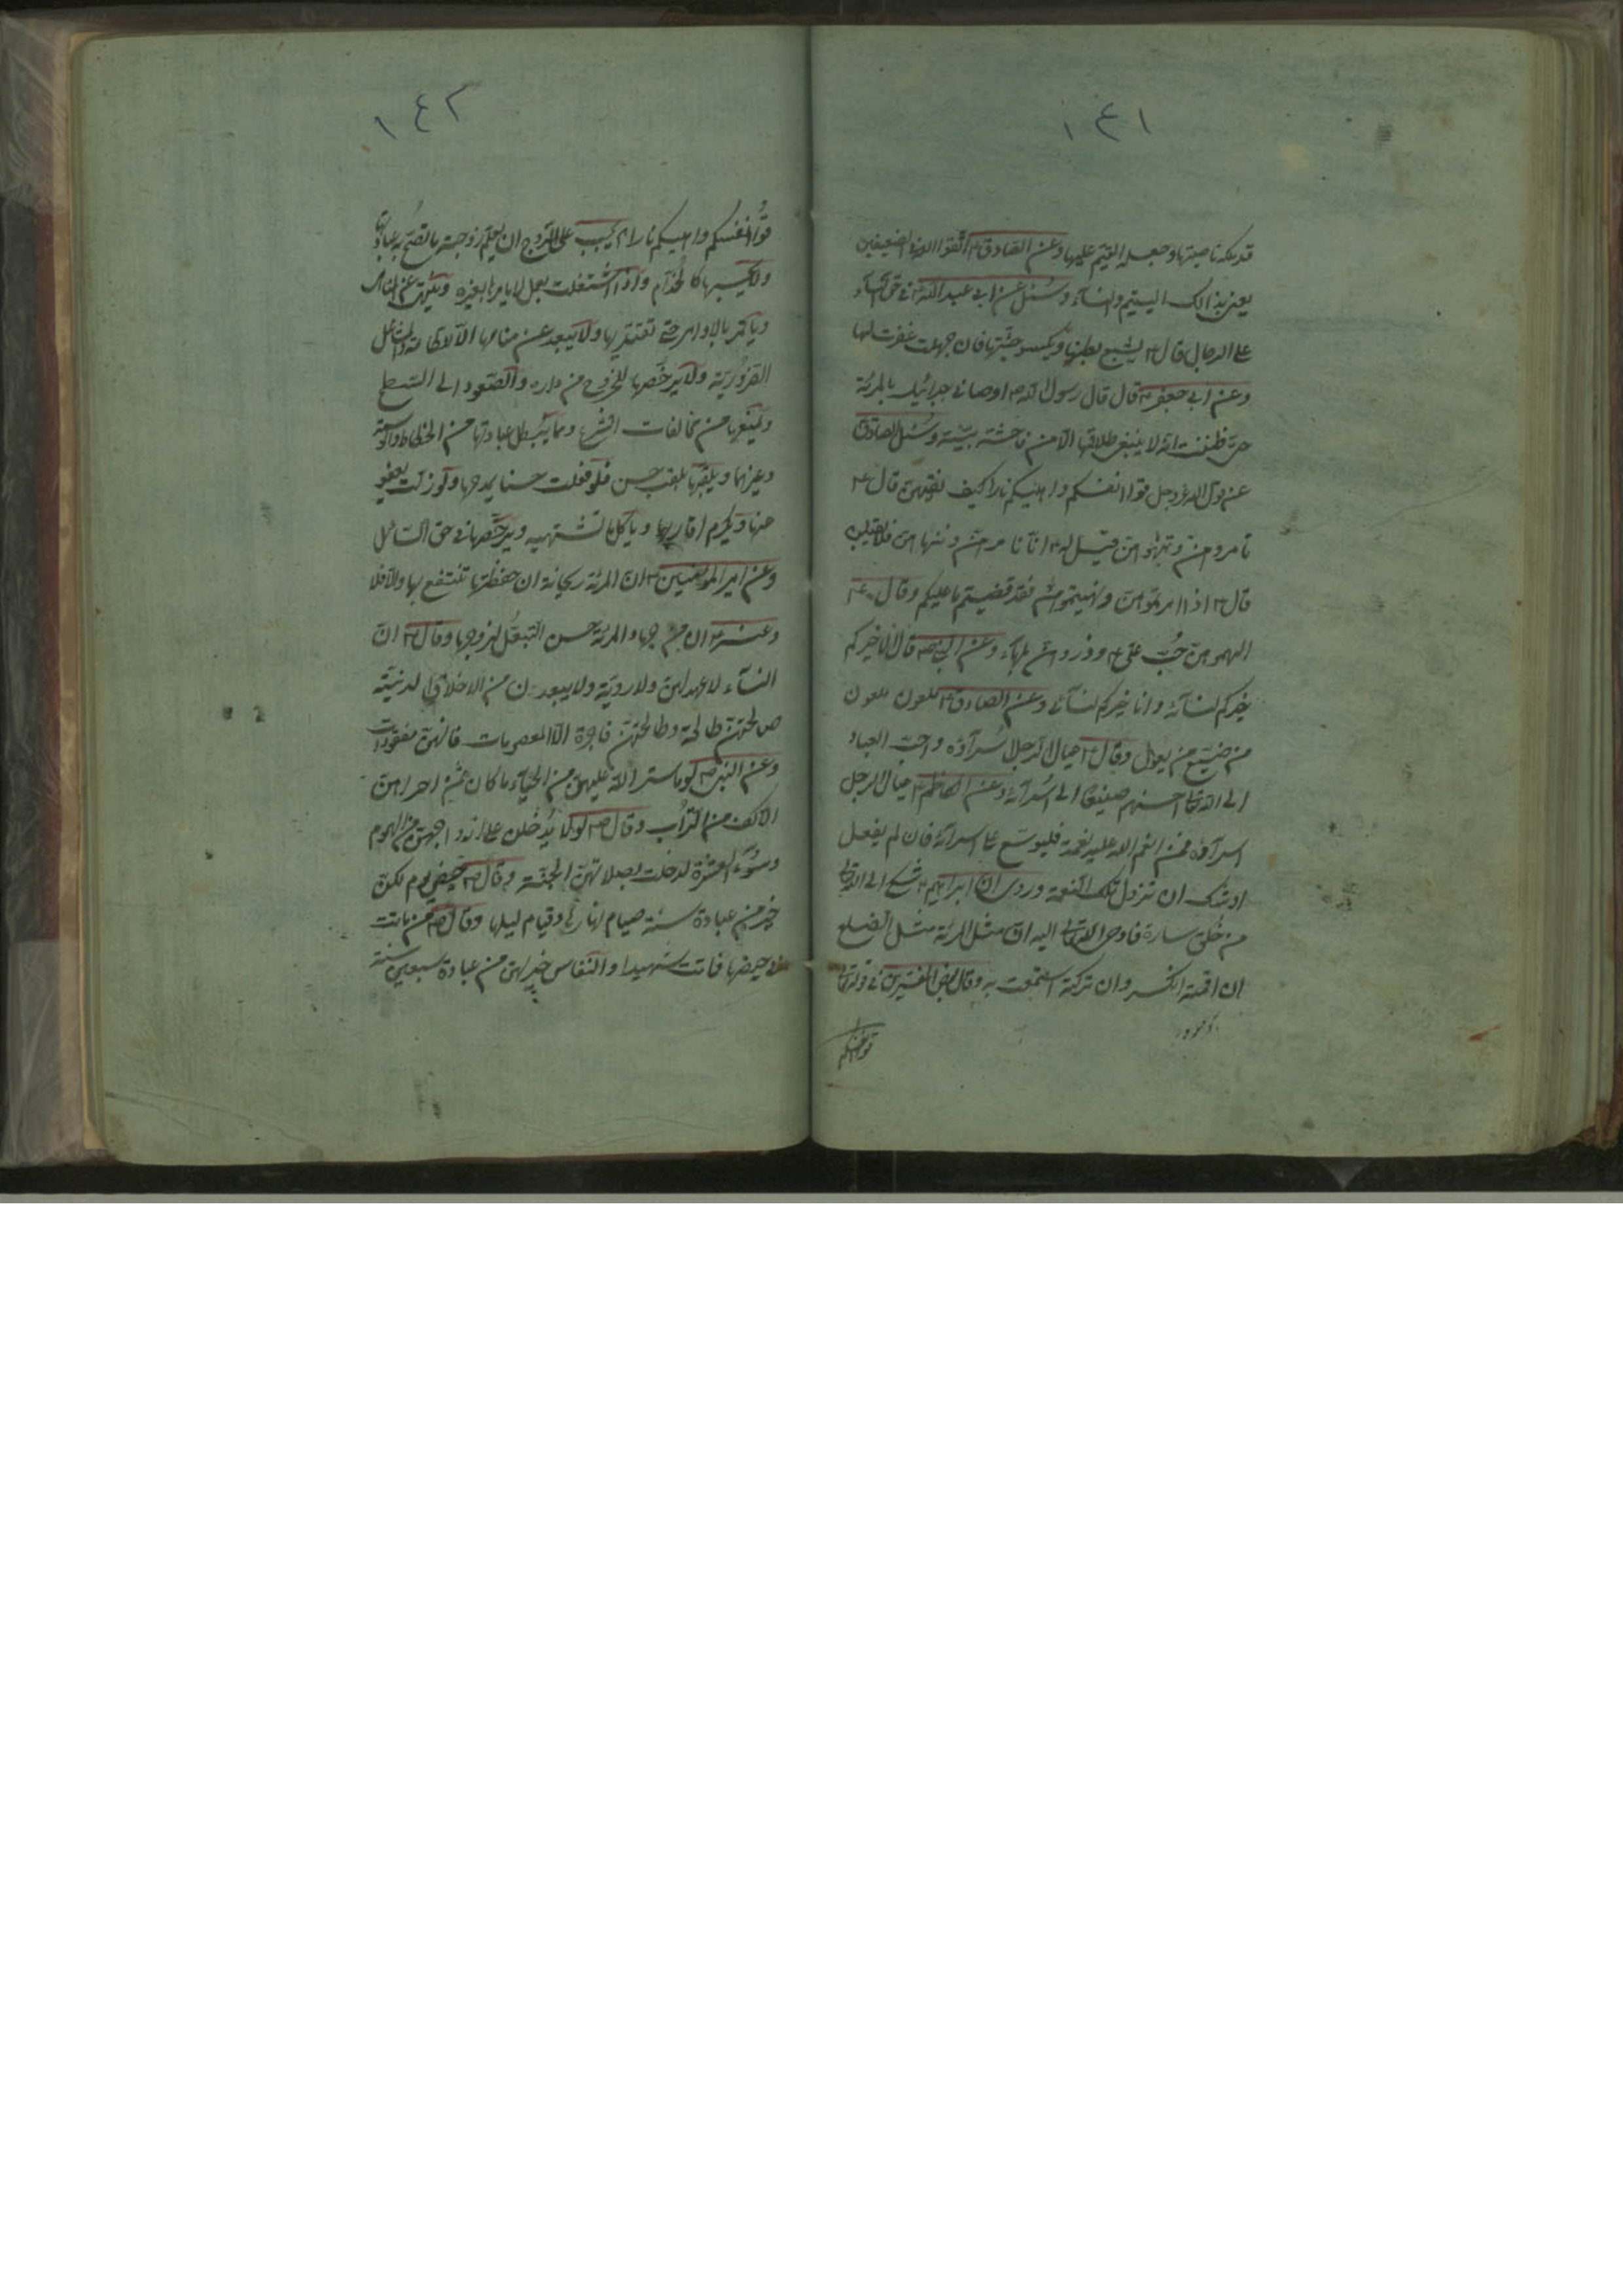 ١٤١
قد ملكه ناصيتها وجعله القيم عليها وعن الصادق ع اتقوا الله في الضعيفين
يعني بذالك اليتيم والنسآء وسئل عن ابي عبد الله ع في حق النسآء
على الرجال قال ع يشبع بطنها ويكسو جثتها فان جهلت غفرت لها
وعن ابي جعفر ع قال قال رسول الله ص اوصاني جبرائيل بالمرئة
حتى ظننت انه لا ينبغي طلاقها الا من فاحشة بينة وسئل الصادق
عن قول الله عز وجل قوا انفسكم واهليكم نارا كيف نقيهن قال ع
تأمرونهن وتنهونهن قيل له ع انا نامرهن وننهاهن فلا يقبلن
قال ع اذا امرتموهن ونهيتموهن فقد قضيتم ما عليكم وقال ع
الهموهن حب علي ع وذروهن بلهآء وعن النبي ص قال الا خيركم
خيركم لنسآئه وانا خيركم لنسآئي وعن الصادق ع ملعون ملعون
من ضيع من يعول وقال ع عيال الرجل اسرآؤه واحب العباد
الى الله تعالى احسنهم صنيعا الى اسرآئه وعن الكاظم ع عيال الرجل
اسرآؤه فمن انعم الله عليه نعمة فليوسع على اسرآئه فان لم يفعل
اوشك ان تزول تلك النعمة وروى ان ابراهيم ع شكى الى الله تعالى
من خلق سارة فاوحى الله تعالى اليه ان مثل المرئة مثل الضلع
ان اقمته انكسر وان تركته استمتعت به وقال بعض المفسرين في قوله تعالى
قوا انفسكم
١٤٢
قوا انفسكم واهليكم نارا يجب على الزوج ان يعلم زوجته ما تصح به عباداتها
ولا يحسبها كالخدام واذا اشتغلت بعمل لا يامرها بغيره
ويأمر بالاوامر حتى تقتدر بها ولا يبعد عن منامها الا لاطاعة والمشاغل
الضرورية ولا يرخصها للخروج من داره والصعود الى السطح
ويمنعها من مخالفات الشرع ومما يبطل عباداتها من الخطاء والوسوسة
وغيرهما ويلقبها بلقب حسن فلو فعلت حسنا يمدحها ولو زلت يعفو
عنها ويكرم اقاربها ويأكل ما تشتهيه ويرخصها في حق السائل
وعن امير المؤمنين ع ان المرئة ريحانة ان حفظتها تنتفع بها والا فلا
وعنه ع ان من جهاد المرئة حسن التبعل لزوجها وقال ع ان
النسآء لا عهد لهن ولا روية ولا يبعدن من الاخلاق الدنيئة
صالحتهن طالحة وطالحتهن فاجرة الا المعصومات فانهن مفقودات
وعن النبي ص لو ما ستر الله عليهن من الحيآء ما كان ثمن احداهن
الا كف من التراب وقال ص لولا يدخلن على ازواجهن من الهموم
وسوء العشرة لدخلت بصلاتهن الجنة وقال ص حيض يوم لكن
خير من عبادة سنة صيام نهارها وقيام ليلها وقال ص من ماتت
في حيضها فاتت شهيدا والنفاس خير لهن من عبادة سبعين سنة